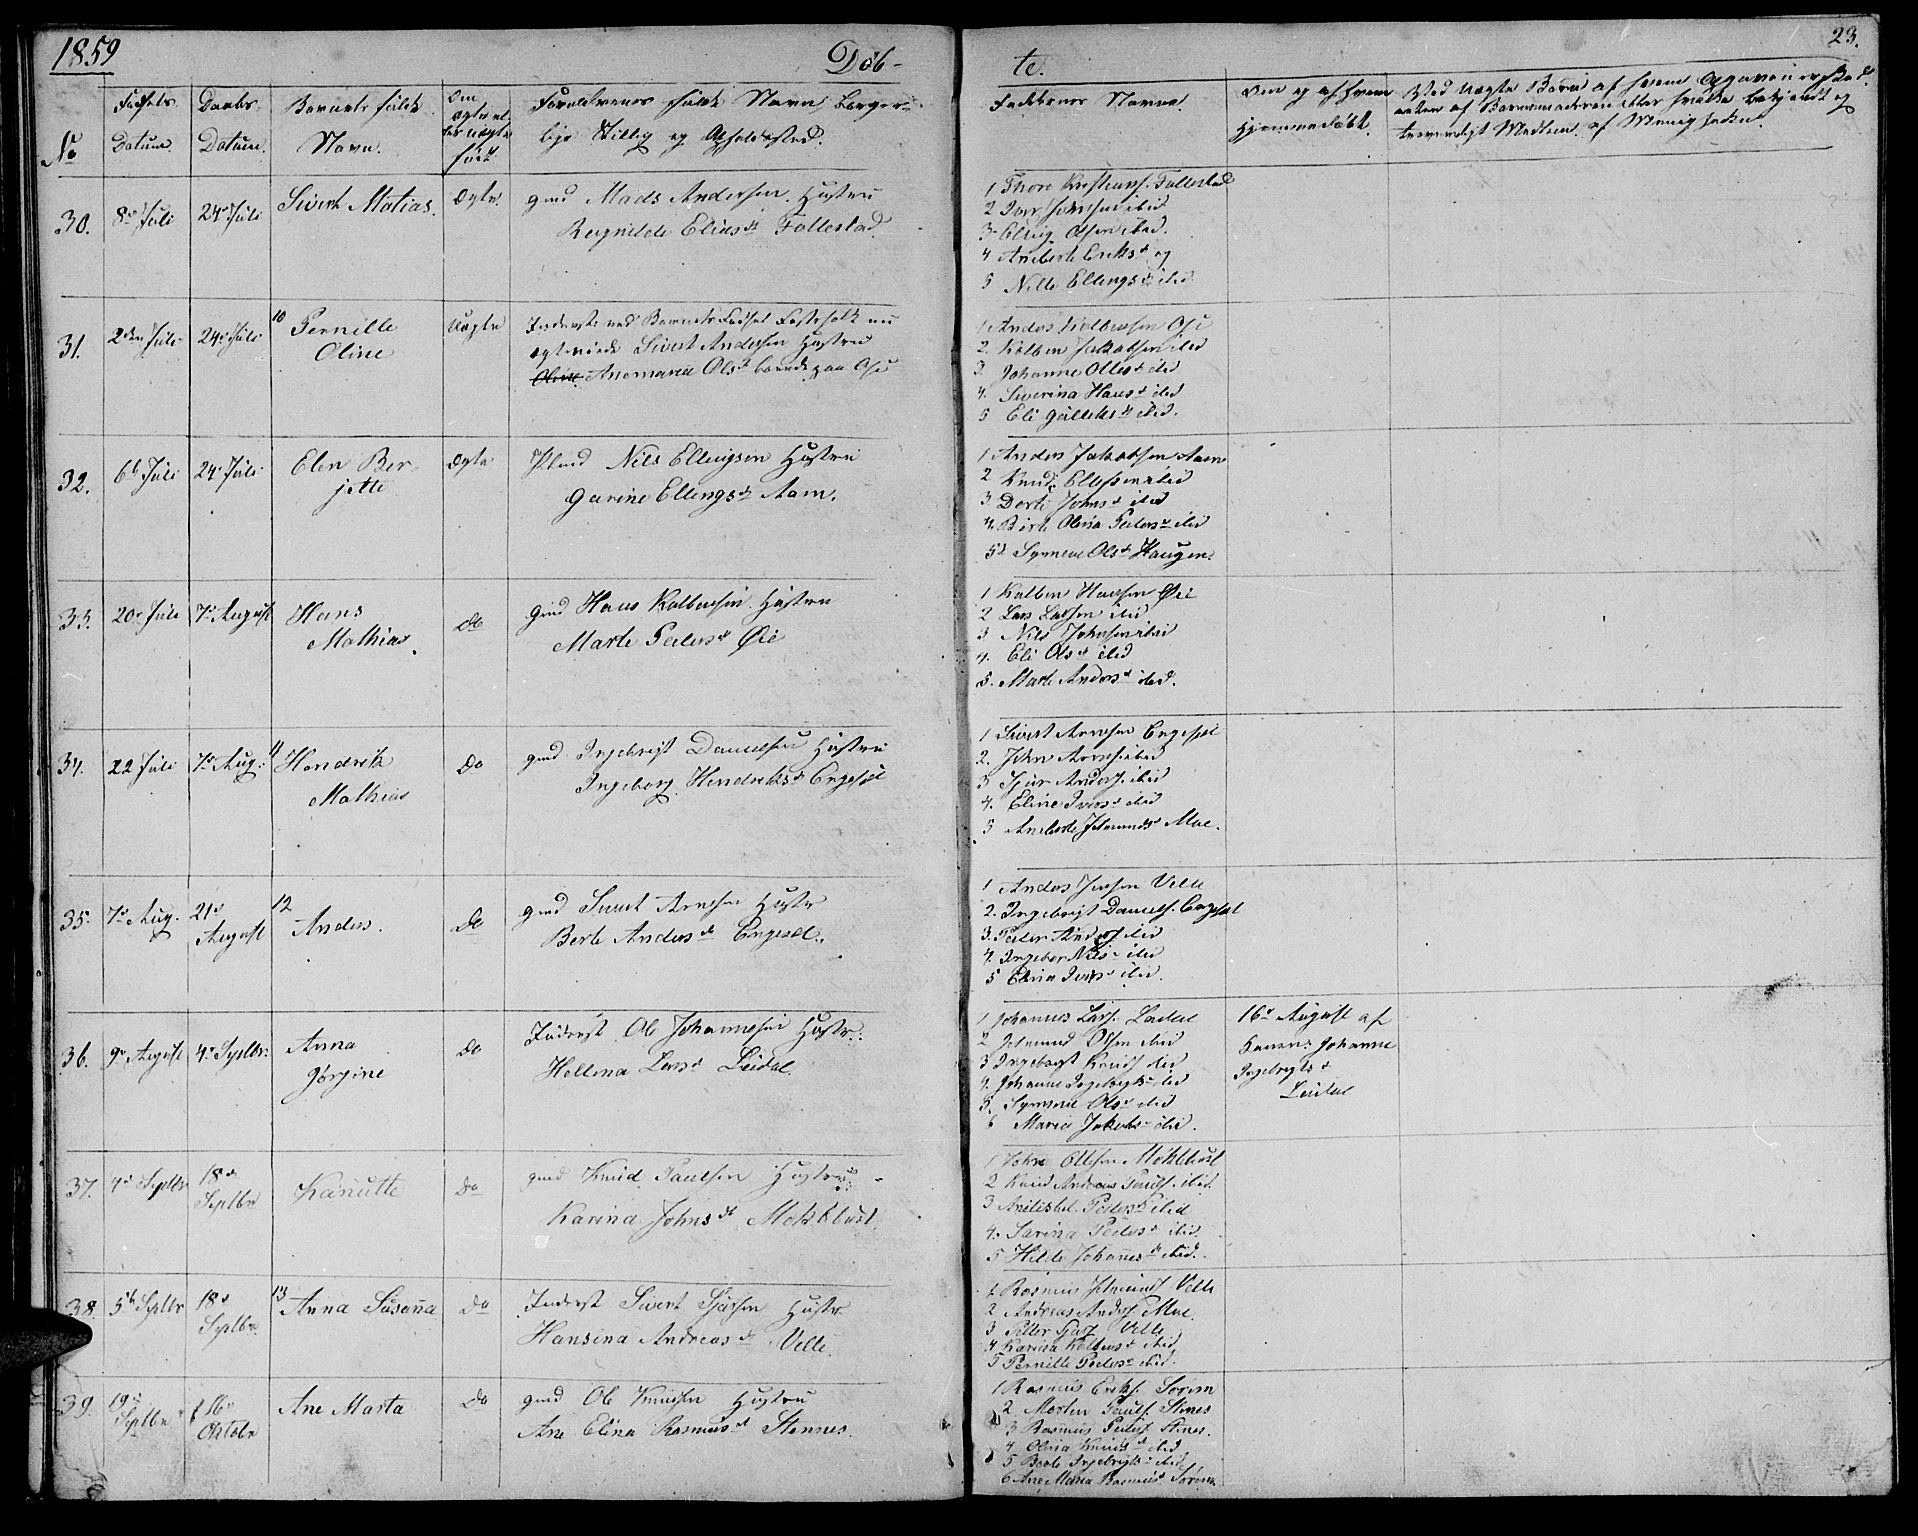 1859
Døb-
te.
23.
No
Fødsels Datum.
Daabs Datum.
Barnets fulde Navn.
Om ægte el- ler uægte født
Forældrenes fulde Navn, Borger-
lige Stilling og Opholdssted.
Faddernes Navne.
Hjemmedøbt.
30. 8de Juli 24de Juli Sivert Matias. Ægte. gmd Mads Andersen. Hustru
Ragnilde Eliasdt Follestad
1 Thore Kristians. Follestad
2 Iver Johnsen ibid
3 Elling Olsen ibid.
4 Aneberte Eriksdt og
5 Nille Ellingsdt ibid
31. 2den Juli 24de Juli 10 Pernille
Oline
Uægte Inderst ved Barnets Fødsel Fæstefolk nu
ægteviede Sivert Andersen Hustru
Oline Anemaria Olsdt boende paa Ose
1 Anders Kolbensen Ose
2. Kolben Jakobsen ibid
3. Johanne Ollesdt ibid
4. Siverina Hansdt ibid
5 Eli Gulleksdt ibid.
32. 6te Juli 24de Juli Elen Ber-
jette
Ægte Plmd Nils Ellingsen Hustru
Garine Ellingsdt Aam.
1 Anders Jakobsen Aam
2 Knud Elefsen ibid
3 Dorte Johnsdt ibid
4. Berte Olina Pedersdt ibid
5 Synneve Olsdt Haugen.
33. 20de Juli 7de August Hans
Mathias.
do gmd Hans Kolbensen. Hustru
Marte Pedersdt Øie
1 Kolben Hansen Øie
2 Lars Larsen ibid
3 Nils Johnsen ibid
4. Eli Olsdt ibid
5. Marte Andersdt ibid.
34. 22 Juli 7de Aug. 11 Hendrik
Mathias
do gmd Ingebrigt Danielsen Hustru
Ingeborg Hendriksdt Engeset
1 Sivert Arnesen Engeset
2. John Arnesen ibid
3 Sjur Anders. ibid
4. Eline Iversdt ibid
5 Aneberte Jetmundsdt Moe.
35. 7de Aug. 21de August 12 Anders. do gmd Sivert Arnesen Hustr
Berte Andersdt Engeset.
1 Anders Jensen Velle
2. Ingebrigt Daniels. Engeset
3. Peder Anders ibid
4. Ingebor Nilsdt ibid
5 Elina Iversdt ibid.
36. 9de August 4de Septbr. Anna
Jørgine
do Inderst Ole Johannesen Hustr.
Hellena Larsdt Leidal.
1 Johannes Lars. Leidal
2 Jetmund Olsen ibid
3 Ingebrigt Knuds ibid
4. Johanne Ingebrigtsdt ibid
5. Synneve Olsdt ibid
6 Maria Jakobsdt ibid.
16de August af
Johanne
Ingebrigtsdt
Leidal
37. 4de Septbr 18de Septbr Kanutte do gmd Knud Paulsen Hustru.
Karina Johnsdt Moklebust
1 John Ollesen Moklebust
2 Knud Andreas Pauls. ibid.
3 Anelisbet Pedersdt ibid
4. Sarina Pedersdt ibid.
5 Hilde Johanesdt ibid.
38. 5te Septbr 18de Septbr. 13 Anna Susanna do Inderst Sivert Sjursen Hustr
Hansina Andreasdt Velle.
1. Rasmus Jetmunds Velle
2. Andreas Anders. Moe.
3 Petter Velle
4 Karina Kolbensdt ibid.
5 Pernille Pedersdt ibid.
39. 19de Septbr 16de Oktobr Ane Marta do gmd Ole Knudsen Hustru
Ane Elina Rasmusdt Stennes.
1 Rasmus Eriks. Sørem
2 Morten Pauls. Stenes
3 Rasmus Peders Stenes.
4 Olina Knudsdt ibid
5 Berte Ingebrigtsdt ibid.
6 Ane Maria Rasmusdt Sørem